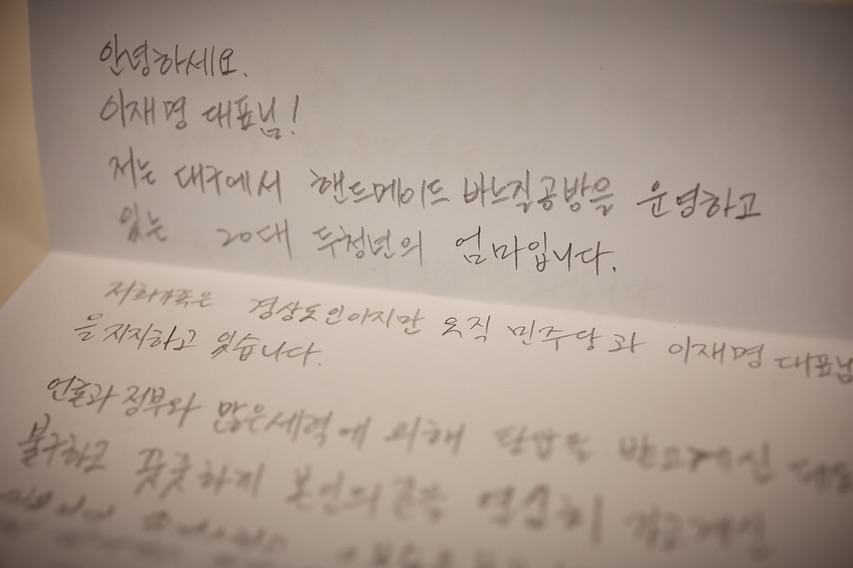 안녕하세요.
이재명 대표님!
저는 대구에서 핸드메이드 바느질공방을 운영하고
있는 20대 두청년의 엄마입니다.
저희가족은 경상도인이지만 오직 민주당과 이재명 대표님
을 지지하고 있습니다.
언론과 정부와 많은세력에 의해 탄압을 받고계신
불구하고 꿋꿋하게 본인의 열심히